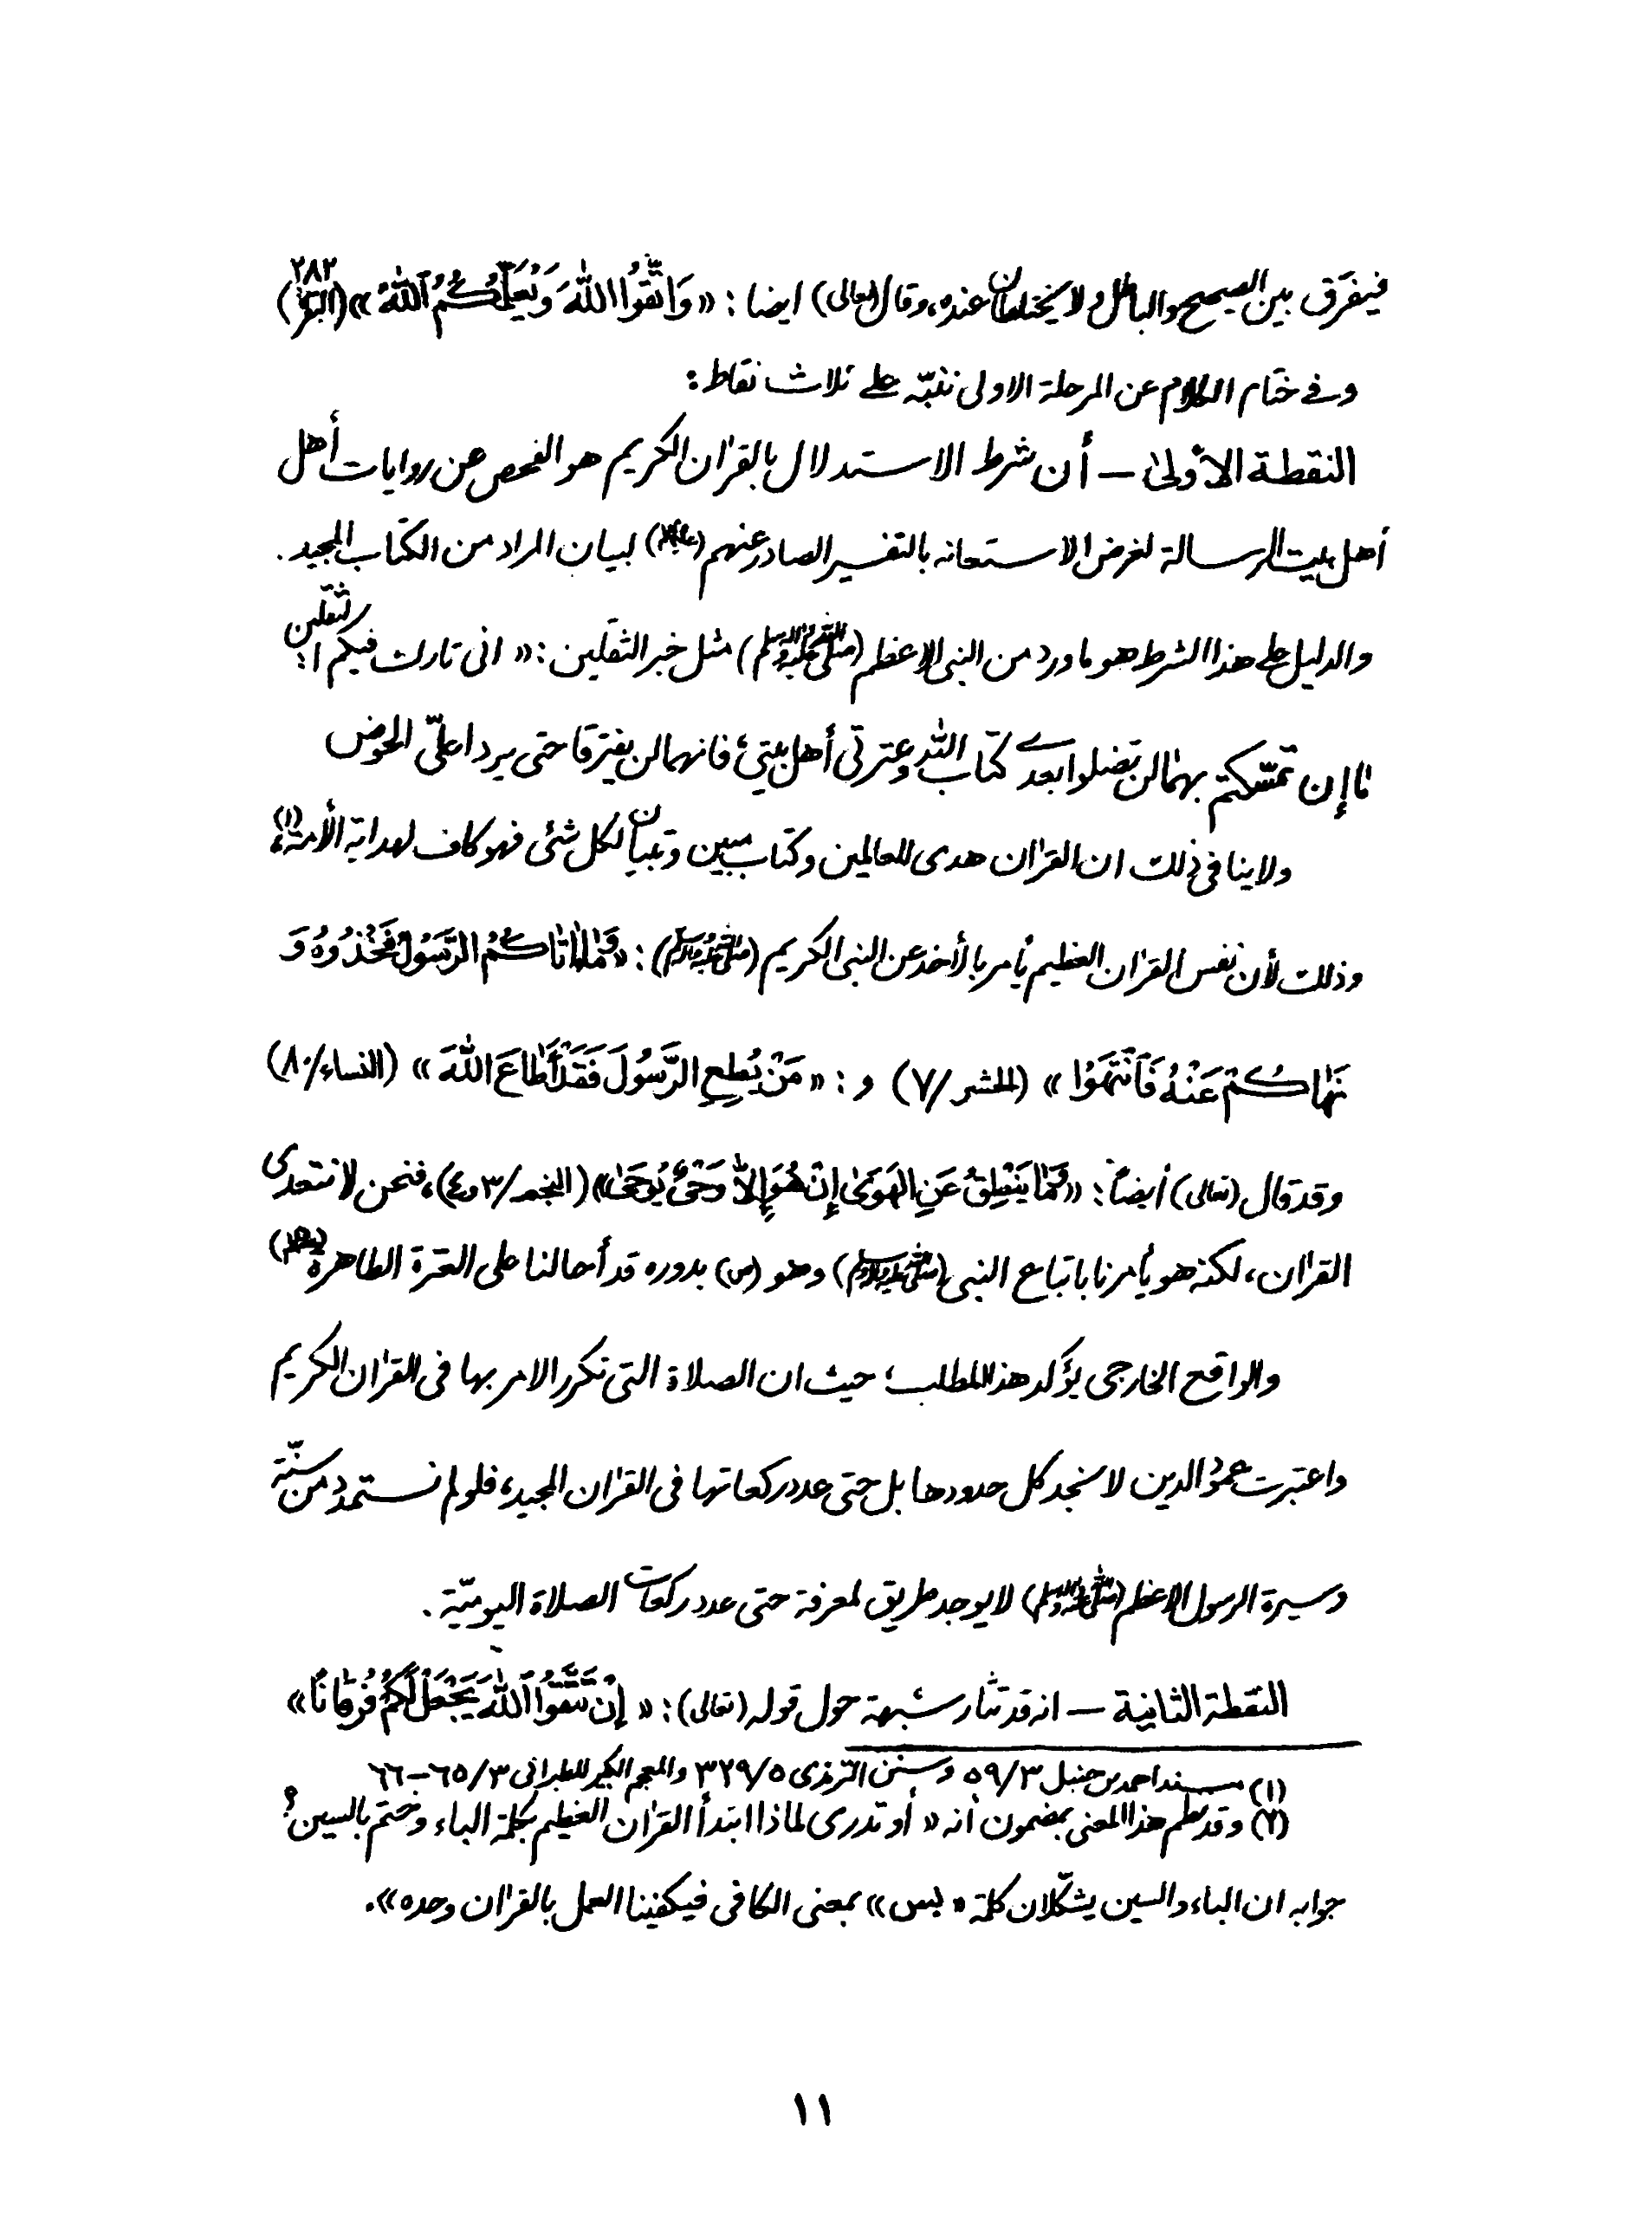 فيفرّق بين الصحيح والباطل ولا يختلطان عنده، وقال (تعالى) ايضا : « وَاتَّقُوا اللهَ وَيُعَلِّمُكُمُ ٱللهُ » (البقرة/٢٨٢)
وفي ختام الكلام عن المرحلة الاولى ننبّه على ثلاث نقاط :
النقطة الأولىٰ – أن شرط الاستدلال بالقرآن الكريم هو الفحص عن روايات أهل
أهل بيت الرسالة لغرض الاستعانه بالتفسير الصادر عنهم (ع) لبيان المراد من الكتاب المجيد .
والدليل على هذا الشرط هو ما ورد من النبى الاعظم (صلى الله عليه وآله وسلم) مثل خبر الثقلين : « انى تارك فيكم الثقلين
ما إن تمسّكتم بهما لن تضلوا بعدى كتاب الله وعترتى أهل بيتى فانهما لن يفترقا حتى يردا علىّ الحوض
ولا ينافى ذلك ان القرآن هدى للعالمين وكتاب مبين وتبيان لكل شئ فهو كاف لهداية الأمة (١)،
وذلك لأن نفس القرآن العظيم يأمر بالأخذ عن النبى الكريم (صلى الله عليه وآله وسلم) : « وَمَا آتَاكُمُ الرَّسُولُ فَخُذُوهُ وَ
نَهَاكُمْ عَنْهُ فَٱنْتَهُوا » (الحشر/٧) و : « مَنْ يُطِعِ الرَّسُولَ فَقَدْ أَطَاعَ اللهَ » (النساء/٨٠)
وقد قال (تعالى) أيضاً : « وَمَا يَنْطِقُ عَنِ الْهَوَىٰ إِنْ هُوَ إِلَّا وَحْىٌ يُوحَىٰ » (النجم/٣ و٤)، فنحن لا نتعدى
القرآن، لكنه هو يأمرنا باتباع النبى (صلى الله عليه وآله وسلم) وهو (ص) بدوره قد أحالنا على العترة الطاهرة (ع)
والواقع الخارجى يؤكد هذا المطلب؛ حيث ان الصلاة التى تكرر الامر بها فى القرآن الكريم
واعتبرت عمود الدين لا نجد كل حدودها بل حتى عدد ركعاتها فى القرآن المجيد، فلو لم نستمد من سنّة
وسيرة الرسول الاعظم (صلى الله عليه وآله وسلم) لا يوجد طريق لمعرفة حتى عدد ركعات الصلاة اليوميّة .
النقطة الثانية – انه قد تثار شبهة حول قوله (تعالى) : « إِنْ تَتَّقُوا ٱللهَ يَجْعَلْ لَكُمْ فُرْقَانًا »
(١) مسند احمد بن حنبل ٥٩/٣ وسنن الترمذى ٣٢٩/٥ والمعجم الكبير للطبرانى ٦٥/٣–٦٦
(٢) وقد نظم هذا المعنى بمضمون أنه « أو تدرى لماذا ابتدأ القرآن العظيم بكلمة الباء وختم بالسين ؟
جوابه ان الباء والسين يشكّلان كلمة « بس » بمعنى الكافى فيكفينا العمل بالقرآن وحده ».
١١